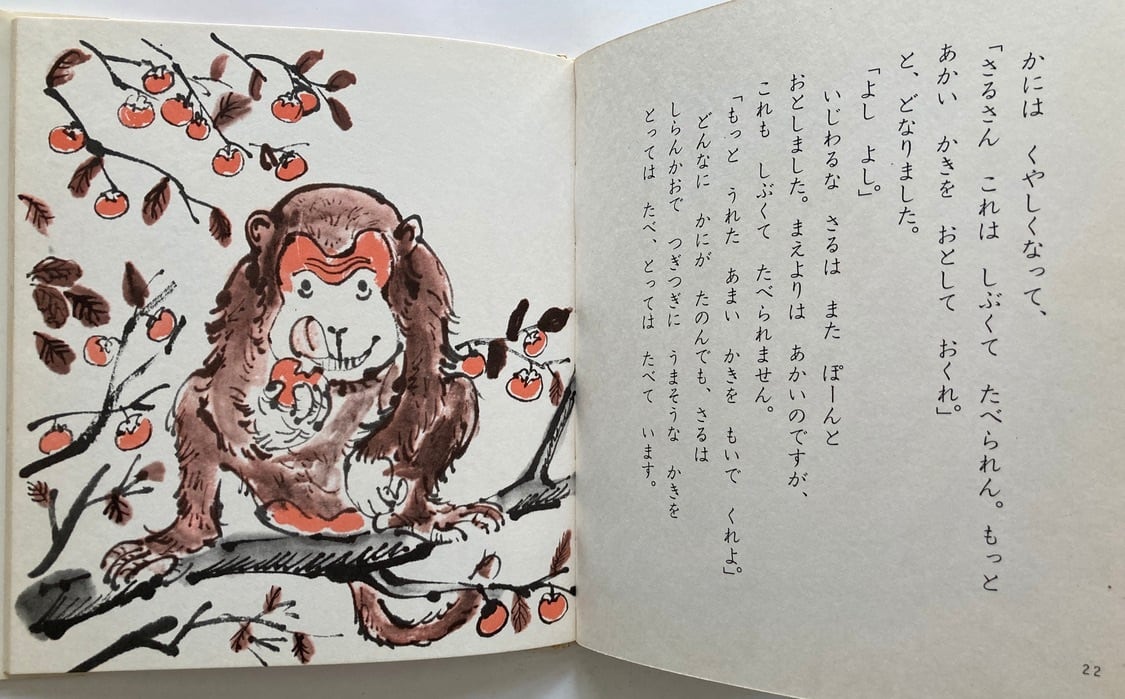 かには　くやしくなって、
「さるさん　これは　しぶくて　たべられん。もっと
あかい　かきを　おとして　おくれ」
と、どなりました。
「よし　よし。」
いじわるな　さるは　また　ぽーんと
おとしました。まえよりは　あかいのですが、
これも　しぶくて　たべられません。
「もっと　うれた　あまい　かきを　もいで　くれよ」
どんなに　かにが　たのんでも、さるは
しらんかおで　つぎつぎに　うまそうな　かきを
とっては　たべ、とっては　たべて　います。
22